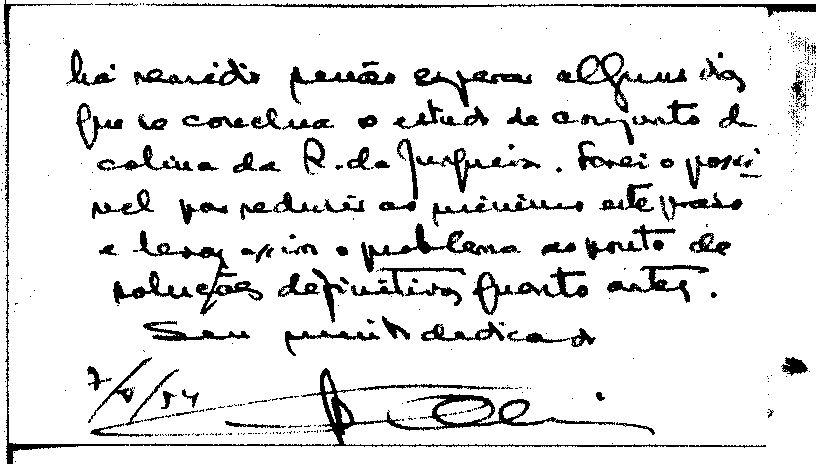 há remédio senão esperar alguns dias
que se conclua o estudo de conjunto da
colina da R. da Junqueira. Farei o possi-
vel por reduzir ao mínimo este prazo
e levar assim o problema ao ponto de
solução definitiva quanto antes.
Seu muito dedicado